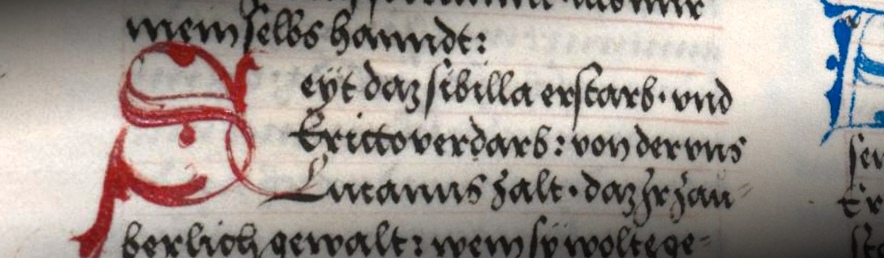 mein selbs hanndt:
Seyt daz sibilla erstarb · vnd
Ericto verdarb: von der vns
Lucanus zalt · daz Jr zau„
berlich gewalt: wem sy wolt ge„